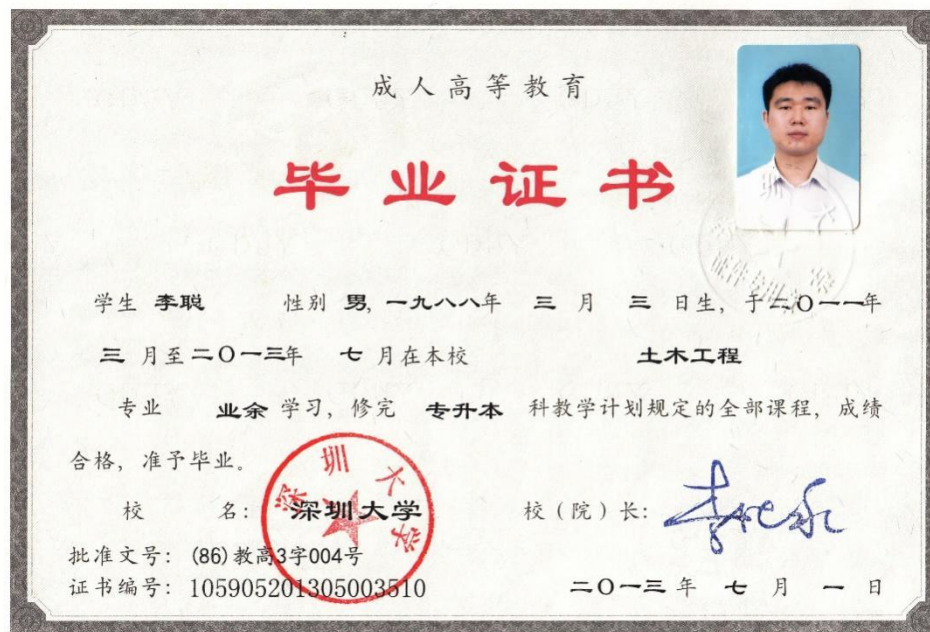 成人高等教育
毕业证书
学生 李聪 性别 男, 一九八八年 三 月 三 日生, 于二〇一一年
三 月至二〇一三年 七 月在本校 土木工程
专业 业余 学习, 修完 专升本 科教学计划规定的全部课程, 成绩
合格, 准予毕业。
深圳大学
校 名: 深圳大学 校(院)长:
批准文号: (86)教高3字004号
证书编号: 105905201305003510
二〇一三年 七 月 一 日